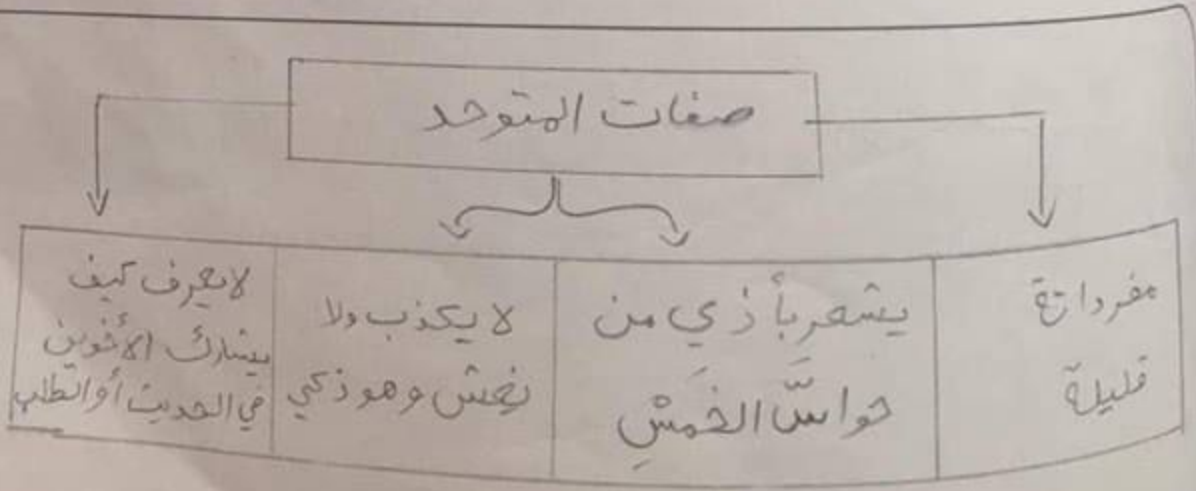 صفات المتوحد
مفرداتة
قليلة
يشعر بأذي من
حواسَّ الخَمْسِ
لا يكذب ولا
يغش وهو ذكي
لا يعرف كيف
يشارك الأخرين
في الحديث أو الطلب